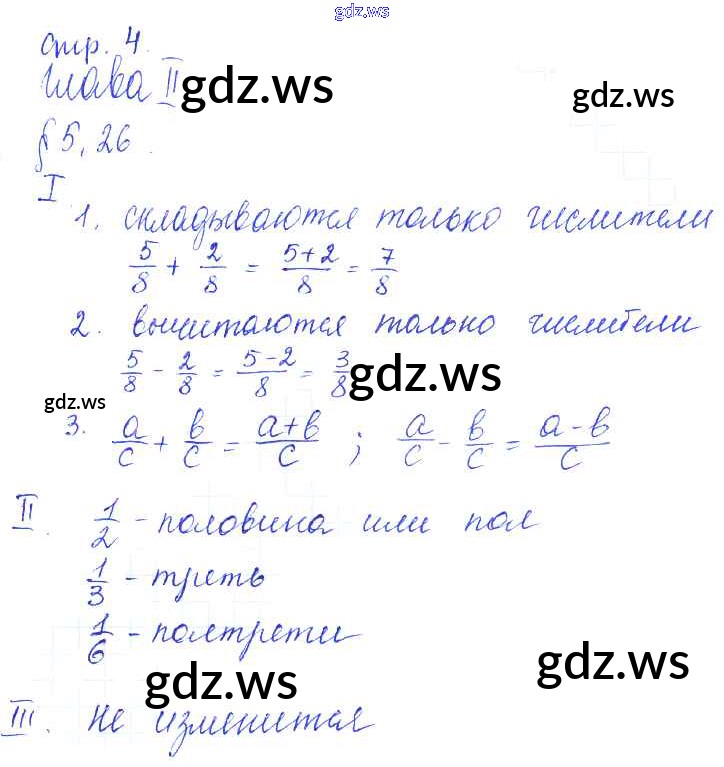 gdz.ws
стр. 4.
Глава II gdz.ws
gdz.ws
§ 5, 26.
I
1. складываются только числители
5/8 + 2/8 = 5+2/8 = 7/8
2. вычитаются только числители
5/8 - 2/8 = 5-2/8 = 3/8
gdz.ws
gdz.ws
3. a/c + b/c = a+b/c ; a/c - b/c = a-b/c
II. 1/2 - половина или пол
1/3 - треть
1/6 - полтрети
gdz.ws
gdz.ws
III. Не изменится